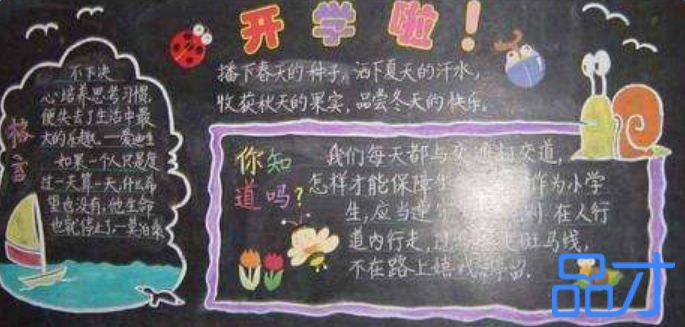 开学啦！
播下春天的种子，洒下夏天的汗水，
收获秋天的果实，品尝冬天的快乐。
格言
不下决
心培养思考习惯，
便失去了生活中最
大的乐趣。—爱迪生
如果一个人只是度
过一天算一天，什么希
望也没有，他生命
也就停止了，—莫泊桑
你知
道吗？
我们每天都与交通打交道，
怎样才能保障生 作为小学
生，应当遵 在人行
道内行走， 斑马线，
不在路上嬉戏 留.
品才